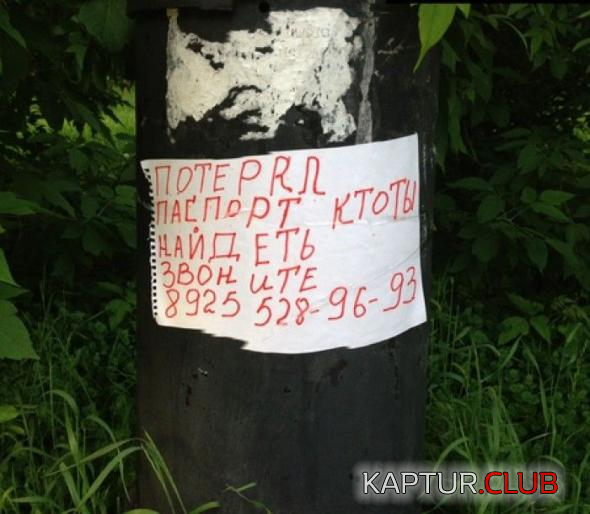 ПОТЕРЯЛ
ПАСПОРТ КТОТЫ
НАЙДЕТЬ
ЗВОНИТЕ
8925 528-96-93
KAPTUR.CLUB